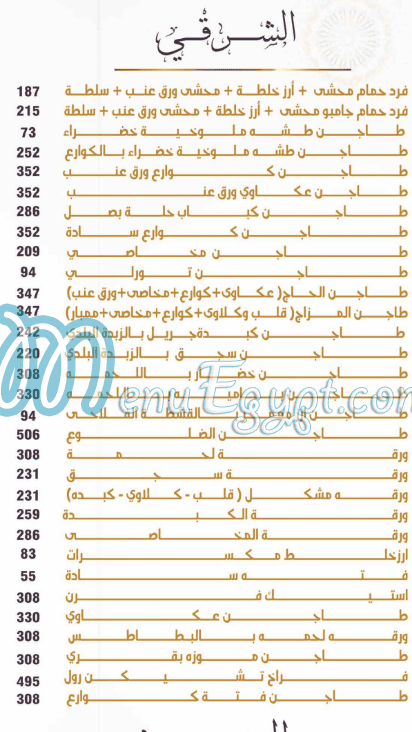 الشرقي
فرد حمام محشى + أرز خلطة + محشى ورق عنب + سلطة 187
فرد حمام جامبو محشى + أرز خلطة + محشى ورق عنب + سلطة 215
طاجن طشه ملوخية خضراء 73
طاجن طشه ملوخية خضراء بالكوارع 252
طاجن كوارع ورق عنب 352
طاجن عكاوى ورق عنب 352
طاجن كباب حلة بصل 286
طاجن كوارع سادة 352
طاجن مخاصي 209
طاجن تورلي 94
طاجن الحاج( عكاوى+كوارع+مخاصى+ورق عنب) 347
طاجن المزاج( قلب وكلاوى+كوارع+مخاصى+ممبار) 347
طاجن كبدة جريل بالزبدة البلدي 242
طاجن سجق بالزبدة البلدي 220
طاجن خضار باللحمه 308
طاجن باميه باللحمه 330
طاجن أرز معمر بالقشطه الفلاحى 94
طاجن الضلوع 506
ورقة لحمة 308
ورقة سجق 231
ورقه مشكل ( قلب - كلاوي - كبده) 231
ورقة الكبدة 259
ورقة المخاصى 286
ارز خلط مكسرات 83
فته سادة 55
استيك فرن 308
طاجن عكاوي 330
ورقه لحمه بالبطاطس 308
طاجن موزه بقري 308
فراخ تشيكن رول 495
طاجن فتة كوارع 308
MenuEgypt.com